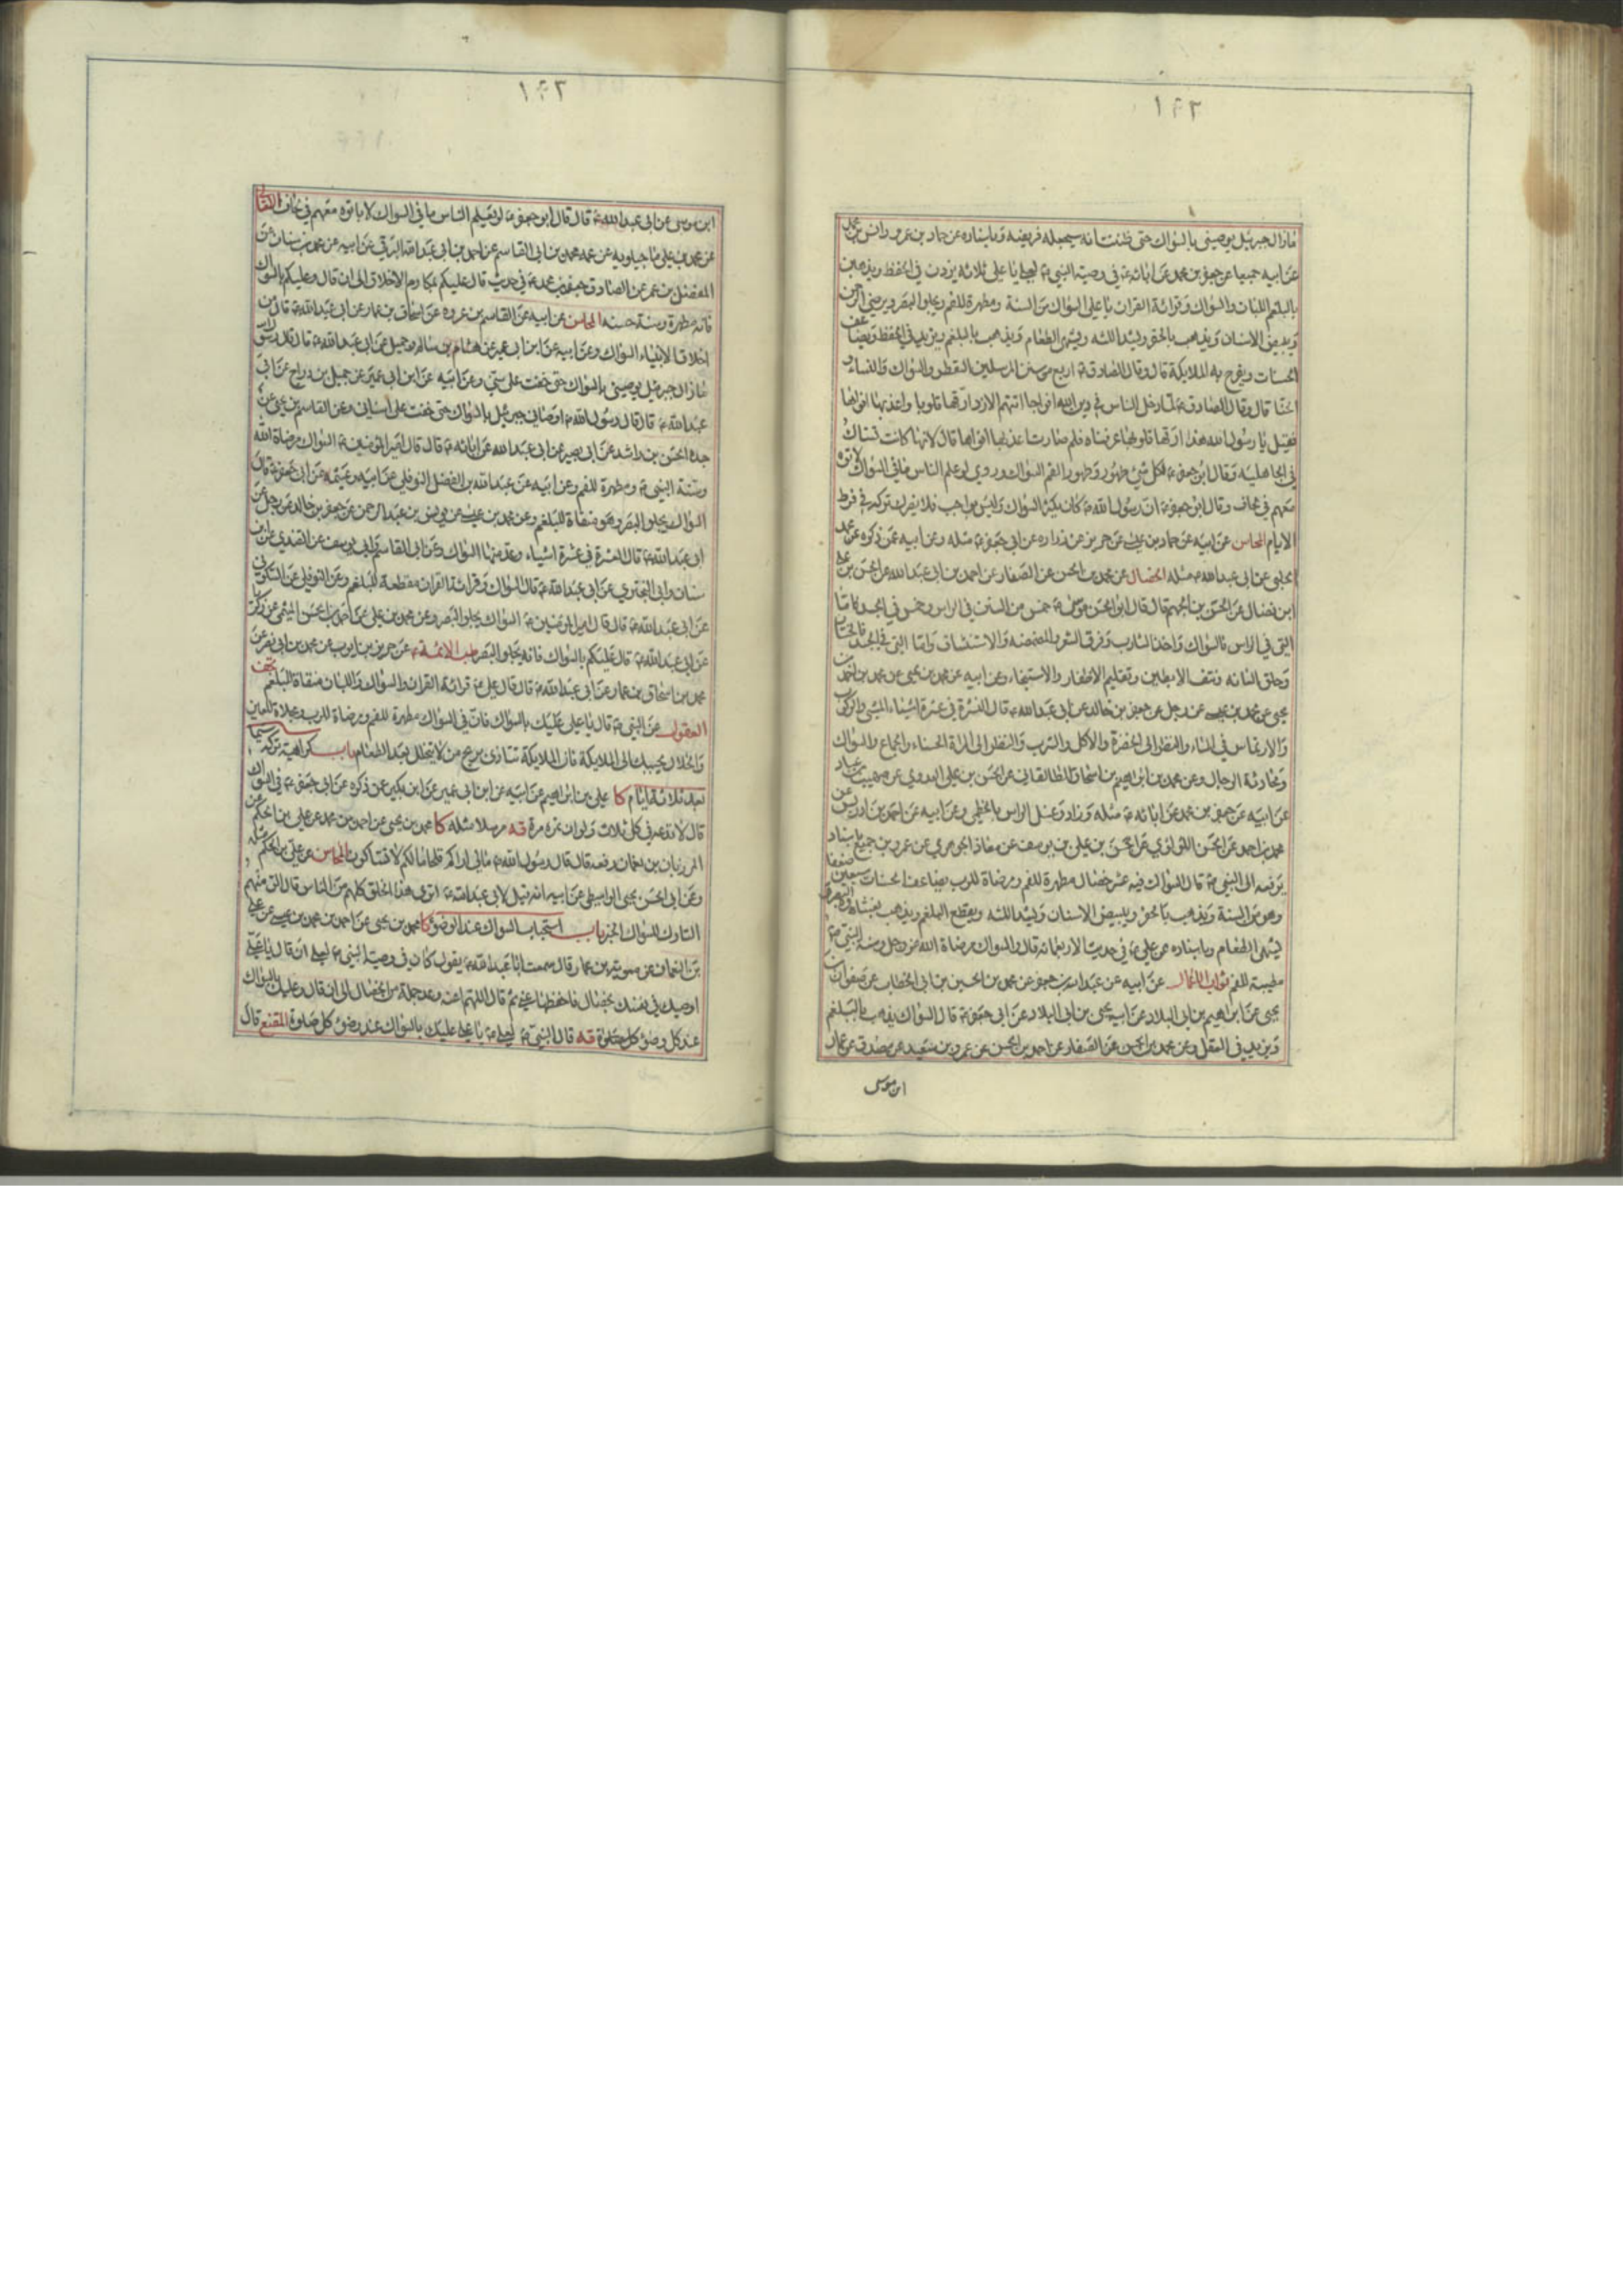 ١٤٢
ما زال جبرئيل يوصيني بالسواك حتى ظننت انه سيجعله فريضة وباسناده عن حماد بن عمرو وانس بن محمد
عن ابيه جميعا عن جعفر بن محمد عن ابائه ع في وصية النبي ص لعلي يا علي ثلاثة يزدن في الحفظ ويذهبن
بالبلغم اللبان والسواك وقرائة القران يا علي السواك من السنة ومطهرة للفم ويجلو البصر ويرضي الرحمن
ويبيض الاسنان ويذهب بالحفر ويشد اللثة ويشهي الطعام ويذهب بالبلغم ويزيد في الحفظ ويضاعف
الحسنات ويفرح به الملايكة قال وقال الصادق ع اربع من سنن المرسلين التعطر والسواك والنساء و
الحنا قال وقال الصادق ع لما دخل الناس في دين الله افواجا اتتهم الازد ارقها قلوبا واعذبها افواها
فقيل يا رسول الله هذا ارقها قلوبا عرفناه فلم صارت اعذبها افواها قال لانها كانت تستاك
في الجاهلية وقال ابو جعفر ع لكل شئ طهور وطهور الفم السواك وروي لو علم الناس ما في السواك لاباتوه
معهم في لحاف وقال ابو جعفر ع ان رسول الله ص كان يكثر السواك وليس بواجب فلا يضرك تركه في فرط
الايام المحاسن عن ابيه عن حماد بن عيسى عن حريز عن زراره عن ابي جعفر ع مثله وعن ابيه عمن ذكره عن محمد
الحلبي عن ابي عبد الله ع مثله الخصال عن محمد بن الحسن عن الصفار عن احمد بن ابي عبد الله عن الحسن بن علي
ابن فضال عن الحسن بن الجهم قال قال ابو الحسن موسى ع خمس من السنن في الراس وخمس في الجسد فاما
التي في الراس فالسواك واخذ الشارب وفرق الشعر والمضمضة والاستنشاق واما التي في الجسد فالختان
وحلق العانه ونتف الابطين وتقليم الاظفار والاستنجاء وعن ابيه عن محمد بن يحيى عن محمد بن احمد بن
يحيى عن محمد بن عيسى عن رجل عن جعفر بن خالد عن ابي عبد الله ع قال النشرة في عشرة اشياء المشي والركوب
والارتماس في الماء والنظر الى الخضرة والاكل والشرب والنظر الى المراة الحسناء والجماع والسواك
ومحادثة الرجال وعن محمد بن ابراهيم بن اسحاق الطالقاني عن الحسن بن علي العدوي عن صهيب بن عباد
عن ابيه عن جعفر بن محمد عن ابائه ع مثله وزاد وغسل الراس بالخطمي وعن ابيه عن احمد بن ادريس عن
محمد بن احمد عن الحسن اللؤلؤي عن الحسن بن علي بن يوسف عن معاذ الجوهري عن عمرو بن جميع باسناد
يرفعه الى النبي ص قال السواك فيه عشر خصال مطهرة للفم ومرضاة للرب يضاعف الحسنات سبعين ضعفا
وهو من السنة ويذهب بالحفر ويبيض الاسنان ويشد اللثه ويقطع البلغم ويذهب بغشاوة البصر و
يشهي الطعام وباسناده عن علي ع في حديث الاربعمائة قال والسواك مرضاة الله عز وجل وسنة النبي ص و
مطيبة للفم ثواب الاعمال عن ابيه عن عبد الله بن جعفر عن محمد بن الحسين بن ابي الخطاب عن صفوان بن
يحيى عن ابراهيم بن ابي البلاد عن ابيه يحيى بن ابي البلاد عن ابي جعفر ع قال السواك يذهب بالبلغم
ويزيد في العقل وعن محمد بن الحسن عن الصفار عن احمد بن الحسن عن عمرو بن سعيد عن مصدق عن عمار
ابن موسى
١٤٣
ابن موسى عن ابي عبد الله ع قال قال ابو جعفر ع لو يعلم الناس ما في السواك لاباتوه معهم في لحاف
عن محمد بن علي ماجيلويه عن عمه محمد بن ابي القاسم عن احمد بن ابي عبد الله البرقي عن ابيه عن محمد بن سنان عن
المفضل بن عمر عن الصادق جعفر بن محمد ع في حديث قال عليكم بمكارم الاخلاق الى ان قال وعليكم بالسواك
فانه مطهرة وسنة حسنه المحاسن عن ابيه عن القاسم بن عروه عن اسحاق بن عمار عن ابي عبد الله ع قال من
اخلاق الانبياء السواك وعن ابيه عن ابن ابي عمير عن هشام بن سالم وجميل عن ابي عبد الله ع قال قال رسول
ما زال جبرئيل يوصيني بالسواك حتى خفت على سني وعن ابيه عن ابن ابي عمير عن جميل بن دراج عن ابي
عبد الله ع قال قال رسول الله ص اوصاني جبرئيل بالسواك حتى خفت على اسناني وعن القاسم بن يحيى عن
جده الحسن بن راشد عن ابي بصير عن ابي عبد الله عن ابائه ع قال قال امير المؤمنين ع السواك مرضاة الله
وسنة النبي ص ومطهرة للفم وعن ابيه عن عبد الله بن الفضل النوفلي عن ابيه وعيثمه عن ابي جعفر ع قال
السواك يجلو البصر وهو منفاة للبلغم وعن محمد بن عيسى عن يونس بن عبد الرحمن عن جعفر بن خالد عن رجل عن
ابي عبد الله ع قال النشرة في عشرة اشياء وعد منها السواك وعن ابي القاسم وابي يوسف عن القندي عن ابن
سنان وابي البختري عن ابي عبد الله ع قال السواك وقرائة القران مقطعة للبلغم وعن النوفلي عن السكوني
عن ابي عبد الله ع قال قال امير المؤمنين ع السواك يجلو البصر وعن محمد بن علي عن احمد بن الحسن الميثمي عن زكريا
عن ابي عبد الله ع قال عليكم بالسواك فانه يجلو البصر طب الائمة ع عن حريز بن ايوب عن محمد بن ابي نصر عن
محمد بن اسحاق بن عمار عن ابي عبد الله ع قال قال علي ع قرائة القران والسواك واللبان منقاة للبلغم تحف
العقول عن النبي ص قال يا علي عليك بالسواك فان في السواك مطهرة للفم ومرضاة للرب ومجلاة للعين
والخلال يحببك الى الملايكة فان الملايكة تتاذى بريح من لا يتخلل بعد الطعام باب كراهية تركه سيما
بعد ثلاثة ايام كا علي بن ابراهيم عن ابيه عن ابن ابي عمير عن ابن بكير عمن ذكره عن ابي جعفر ع في السواك
قال لا تدعه في كل ثلاث ولو ان تمره مرة قه مرسلا مثله كا محمد بن يحيى عن احمد بن محمد عن علي بن الحكم عن
المرزبان بن نعمان رفعه قال قال رسول الله ص مالي اراكم قلحا مالكم لا تستاكون المحاسن عن علي بن الحكم مثله
وعن ابي الحسن يحيى الواسطي عن ابيه انه قيل لابي عبد الله ع اترى هذا الخلق كلهم من الناس قال الق منهم
التارك للسواك الخبر باب استحباب السواك عند الوضوء كا محمد بن يحيى عن احمد بن محمد بن عيسى عن علي
بن النعمان عن معوية بن عمار قال سمعت ابا عبد الله ع يقول كان في وصية النبي ص لعلي ان قال يا علي
اوصيك في نفسك بخصال فاحفظها عني ثم قال اللهم اعنه وعد جملة من الخصال الى ان قال وعليك بالسواك
عند كل وضوء كل صلوة قه قال النبي ص لعلي ع يا علي عليك بالسواك عند وضوء كل صلوة المقنع قال